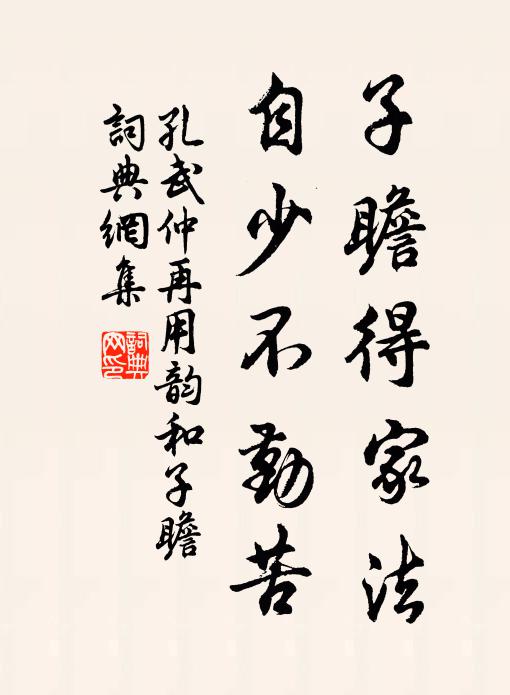 子瞻得家法
自少不勤苦
孔武仲再用韵和子瞻
詞典網集
詞典網印